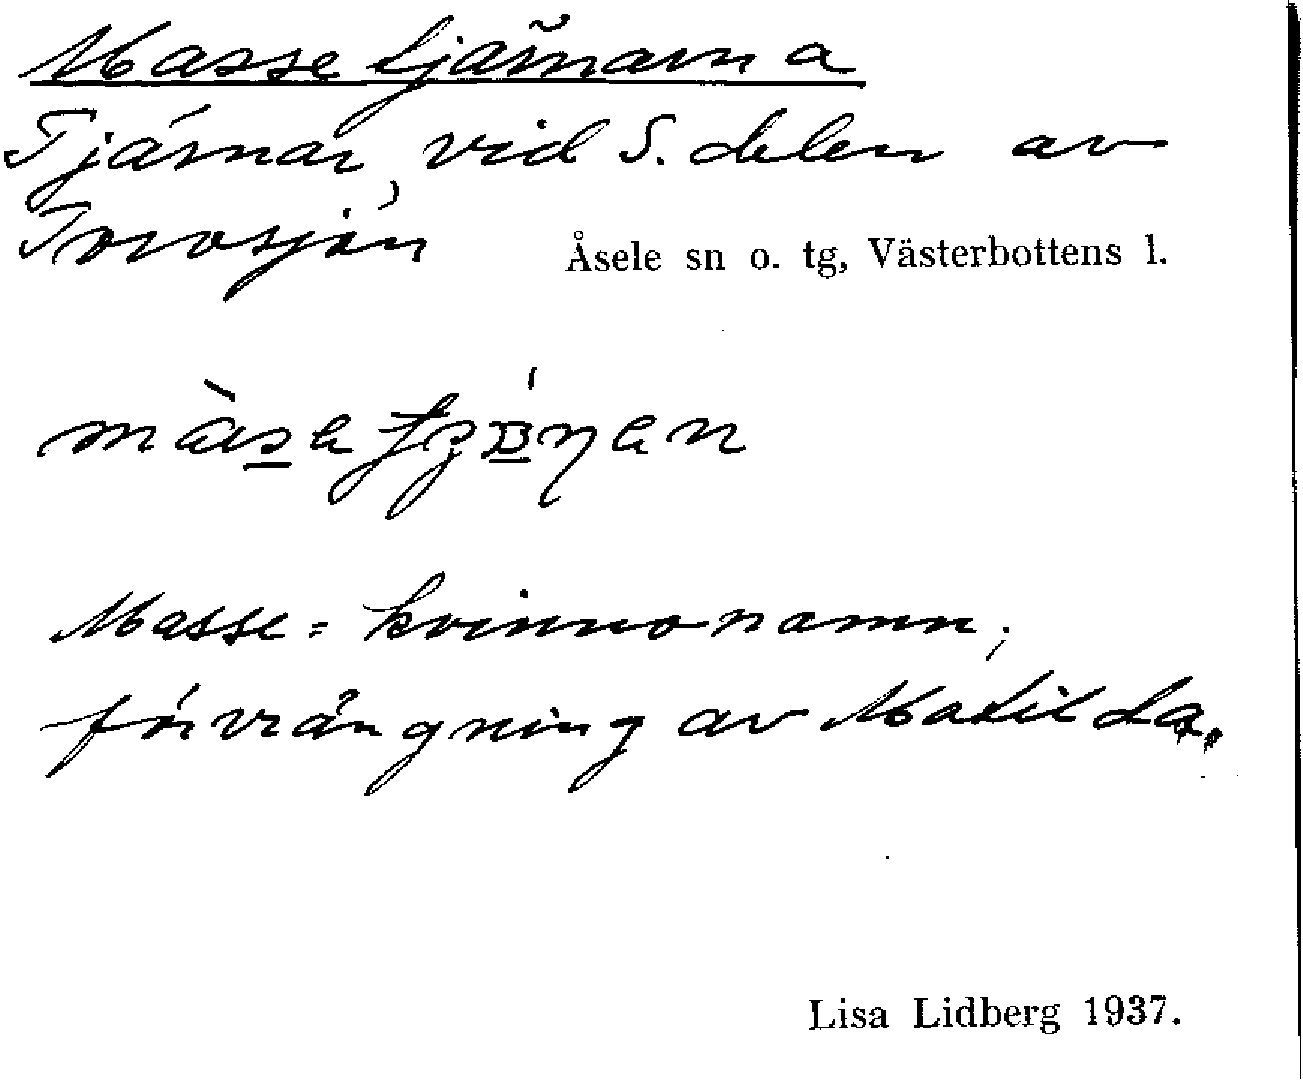 Massetjärnarna
Tjärnar, vid S. delen av
Torvsjön Åsele sn o. tg, Västerbottens l.
Masse = kvinnonamn,
förvrängning av Matilda.
Lisa Lidberg 1937.